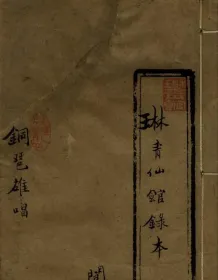 琳青仙館錄本
銅琶雄唱